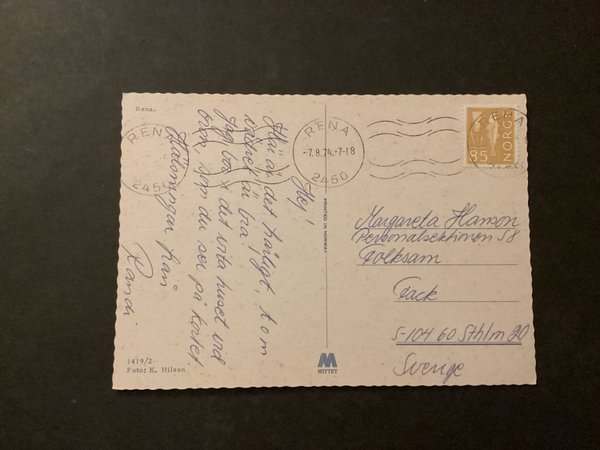 Rena.
RENA
2450
RENA
-7.8.74.-7-18
2450
RENA
NORGE
85
Hej!
Här är det härligt t o m
vädret är bra!
Jag bor i det vita huset vid
bron, som du ser på kortet.
Hälsningar från
Randi
PRINTED IN NORWAY
M
MITTET
Margareta Hamon
Personalsektionen S8
Folksam
Fack
S-104 60 Sthlm 20
Sverige
1419/2
Foto: K. Hilsen